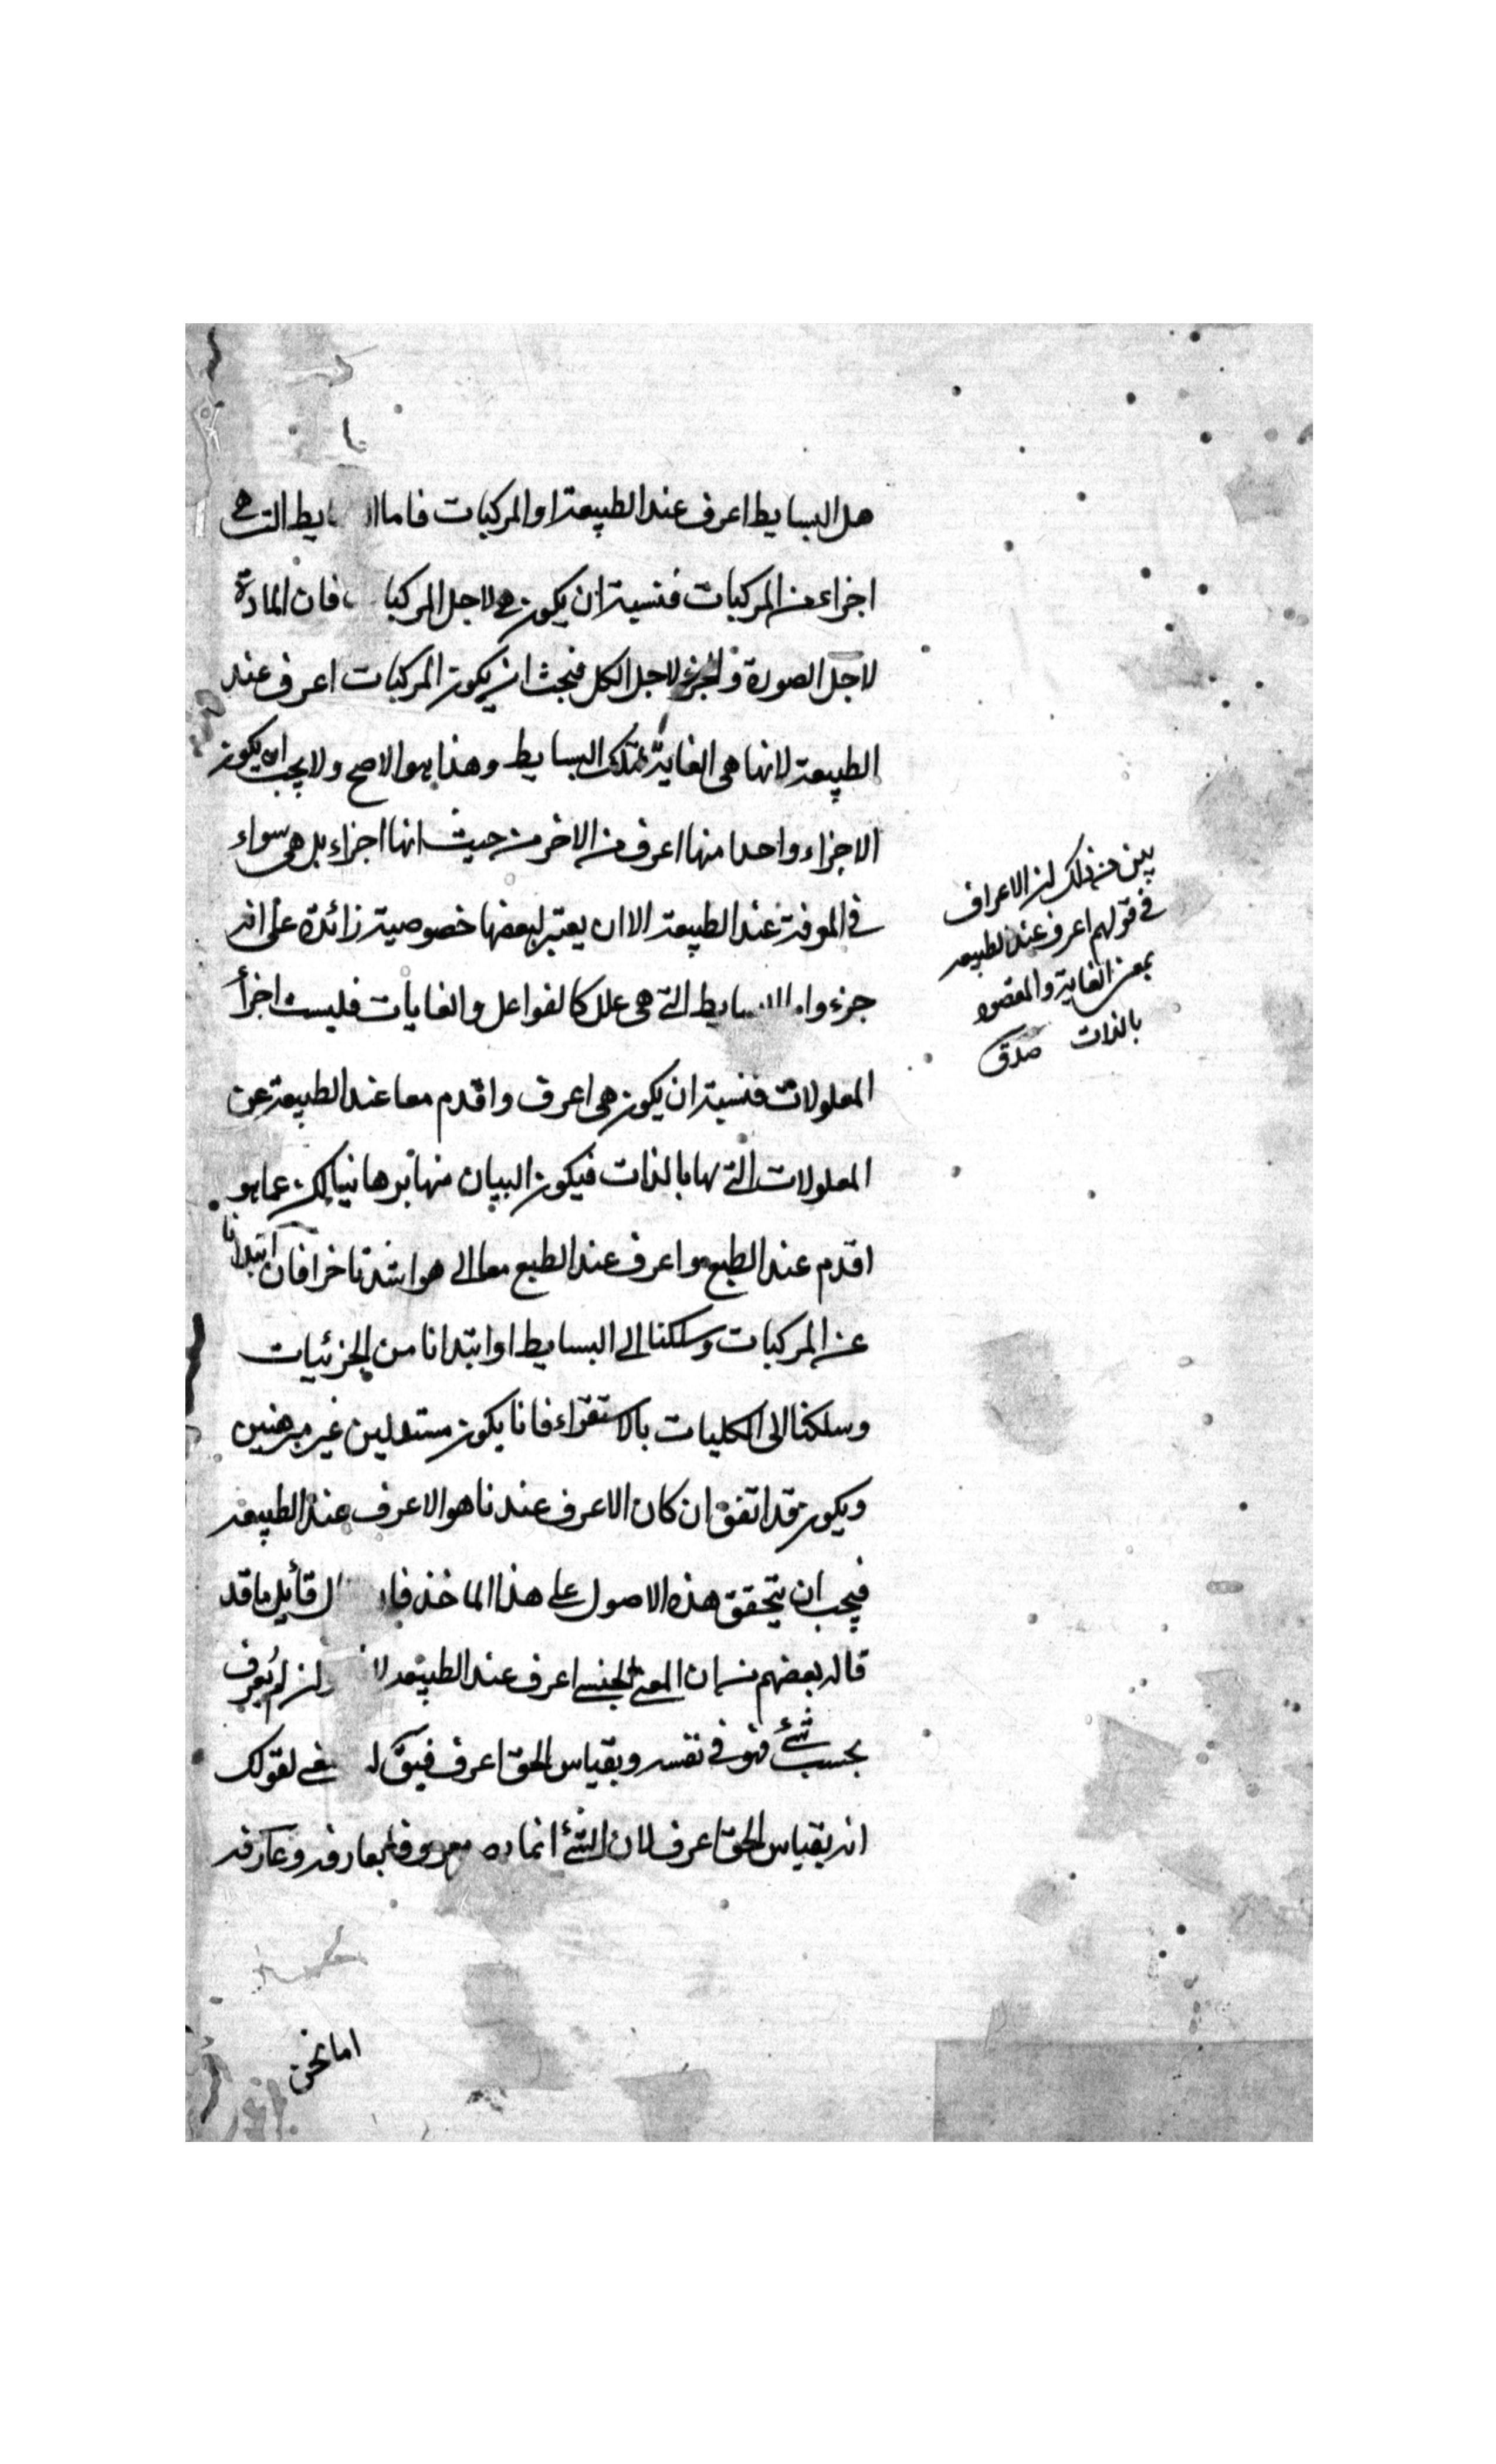 هل البسايط اعرف عند الطبيعة او المركبات فاما ايط التي هي
اجزاء من المركبات فنسبة ان يكون هي لاجل المركبا فان المادة
لاجل الصورة والجزء لاجل الكل فيجب ان يكون المركبات اعرف عند
الطبيعة لانها هي الغاية لتلك البسايط وهذا هو الاصح ولا يجب ان يكون
الاجزاء واحدا منها اعرف من الاخر من حيث انها اجزاء بل هي سواء
في المعرفة عند الطبيعة الا ان يعتبر لبعضها خصوصية زائدة على انه
جزء وا سايط التي هي علل كالفواعل والغايات فليست اجزأ
المعلولات فنسبة ان يكون هي اعرف واقدم معا عند الطبيعة عن
المعلولات التي لها بالذات فيكون البيان منها برهانيا لكن عما هو
اقدم عند الطبع واعرف عند الطبع معا الى هو اشد تاخرا فان ابتدانا
عن المركبات وسلكنا الى البسايط او ابتدانا من الجزئيات
وسلكنا الى الكليات بالاستقراء فانا يكون مستدلين غير مبرهنين
ويكون قد اتفق ان كان الاعرف عندنا هو الاعرف عند الطبيعة
فيجب ان يتحقق هذه الاصول على هذا الماخذ فا ل قائل ما قد
قاله بعضهم من ان المعنى الجنسي اعرف عند الطبيعة لا ان لم يعرف
بحسب شئ فهو في نفسه وبقياس الحق اعرف فيق له معنى لقولك
انه بقياس الحق اعرف لان الشئ انما معروفا بعارفه وعارفه
اما نحن
يبين من ذلك ان الاعراف
في قولهم اعرف عند الطبيعة
بمعنى الغاية والمقصود
بالذات صدق